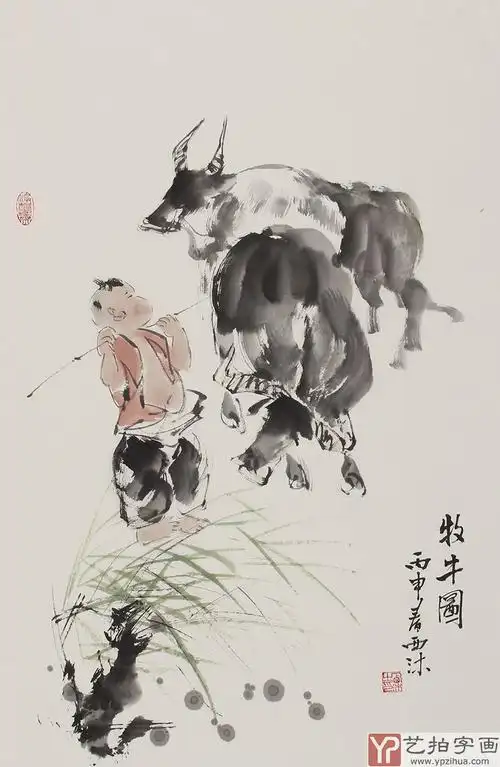 牧牛圖
丙申春西沐
YP 艺拍字画
www.ypzihua.com